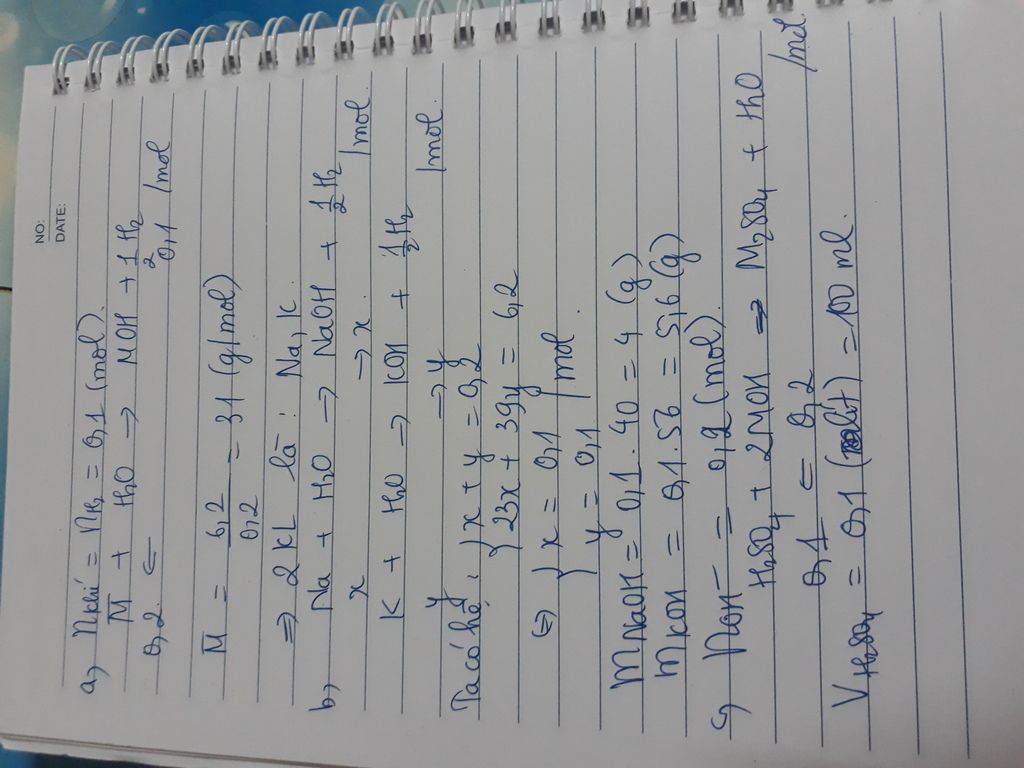 NO:
DATE:
a, nkhí = nH₂ = 0,1 (mol).
M̅ + H₂O → MOH + 1/2 H₂
0,2 ⇐ 0,1 /mol
M̅ = 6,2/0,2 = 31 (g/mol)
⇒ 2 KL là : Na, K.
b, Na + H₂O → NaOH + 1/2 H₂
x → x /mol.
K + H₂O → KOH + 1/2 H₂
y → y /mol
Ta có hệ: { x + y = 0,2
{ 23x + 39y = 6,2
⇔ { x = 0,1 /mol.
{ y = 0,1
mNaOH = 0,1 . 40 = 4 (g)
mKOH = 0,1 . 56 = 5,6 (g)
c, nOH⁻ = 0,2 (mol)
H₂SO₄ + 2MOH → M₂SO₄ + H₂O
0,1 ⇐ 0,2 /mol
VH₂SO₄ = 0,1 (lít) = 100 ml.